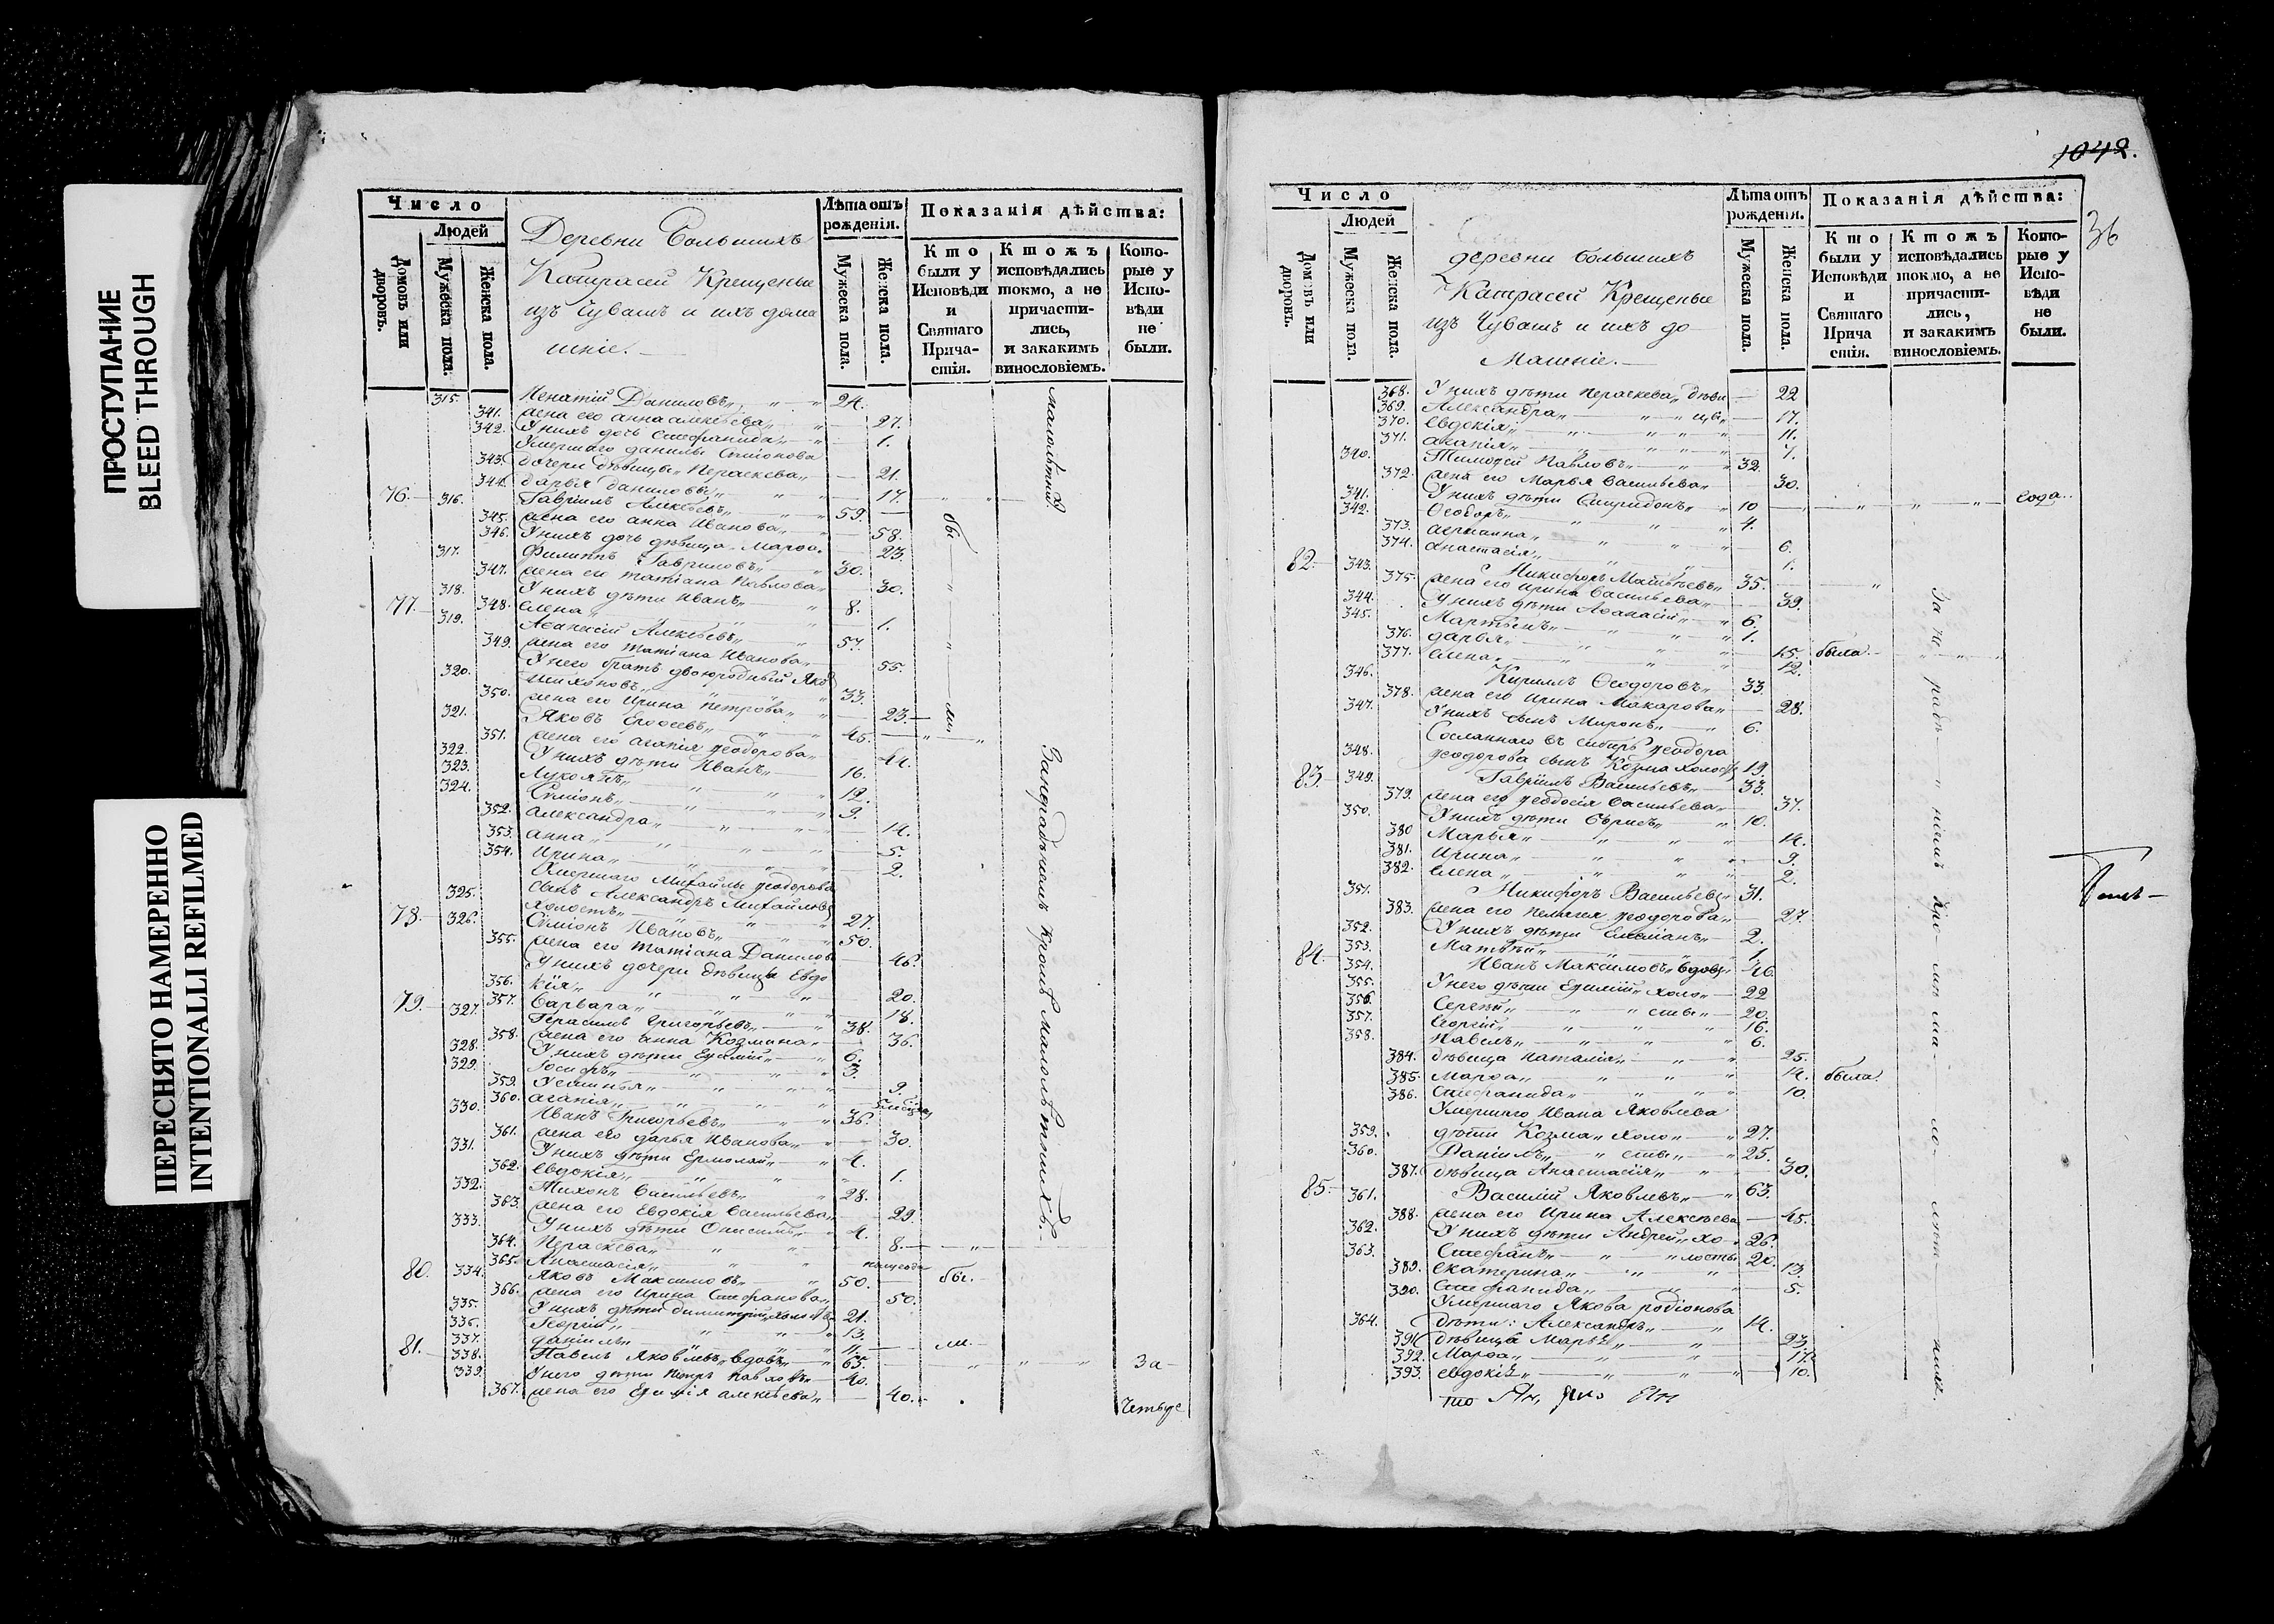 ПРОСТУПАНИЕ
BLEED THROUGH
ПЕРЕСНЯТО НАМЕРЕННО
INTENTIONALLI REFILMED
Число
Людей
Домовъ или дворовъ.
Мужеска пола.
Женска пола.
Деревни Большихъ
Катрасей Крещеные
изъ Чувашъ и ихъ дома
шніе.
Лѣта отъ рожденія.
Мужеска пола.
Женска пола.
Показанія дѣйства:
Кто были у Исповѣди и Святаго Прича-стія.
Ктожъ исповѣдались токмо, а не причасти-лись, и закакимъ винословіемъ.
Кото-рые у Испо-вѣди не были.
315. Игнатій Даниловъ 24.
341. жена его анна алексѣева 27.
342. У нихъ дочь Стефанида 1.
Умершаго данилы Симіонова
343. дочери дѣвицы Параскева 21.
344. дарья даниловы 17.
76. 316. Гавріилъ Алексѣевъ 59.
345. жена его анна Иванова 58.
346. У нихъ дочь дѣвица Марѳа 23.
317. Филиппъ Гавриловъ 30.
347. жена его татіана Павлова 30.
318. У нихъ дѣти Иванъ 8.
348. елена 1.
77. 319. Аѳанасій Алексѣевъ 57.
349. жена его татіана Иванова 55.
У него братъ двоюродный Яко
320. 33.
350. жена его Ирина петрова 23.
321. Яковъ 45.
351. жена его агапія ѳеодорова 44.
322. У нихъ дѣти Иванъ 16.
323. 12.
324. Симіонъ 9.
352. александра 14.
353. анна 5.
354. Ирина 2.
Умершаго Михайлы ѳеодорова
325. сынъ Александръ Михайловъ
холостъ 27.
78. 326. Симіонъ Ивановъ 50.
355. жена его татіана Данилов 46.
У нихъ дочери дѣвицы Евдо
356. кія 20.
357. Варвара 18.
79. 327. Герасимъ Григорьевъ 38.
358. жена его анна Козмина 36.
328. У нихъ дѣти 6.
329. Іосифъ 3.
359. 9.
360. агапія
330. Иванъ Григорьевъ 36.
361. жена его дарья Иванова 30.
331. У нихъ дѣти Ермолай 4.
362. евдокія 1.
332. Тихонъ Васильевъ 28.
363. жена его Евдокія Васильева 29.
333. У нихъ дѣти Онисимъ 4.
364. Параскева 8.
365. Анастасія
80. 334. Яковъ Максимовъ 50.
366. жена его Ирина Стефанова 50.
335. У нихъ дѣти димитрій холостъ 21.
336. Георгій 13.
337. даніилъ 11.
81. 338. Павелъ Яковлевъ вдовъ 65.
339. У него дѣти Петръ Павловъ 40.
367. жена его алексѣева 40.
бы
ли
бы.
ли.
малолѣтнихъ
кромѣ малолѣтнихъ.
За
Четыре
1042.
36
Число
Людей
Домовъ или дворовъ.
Мужеска пола.
Женска пола.
деревни большихъ
Катрасей Крещеные
изъ Чувашъ и ихъ до
машніе.
Лѣта отъ рожденія.
Мужеска пола.
Женска пола.
Показанія дѣйства:
Кто были у Исповѣди и Святаго Прича стія.
Ктожъ исповѣдались токмо, а не причасти-лись, и закакимъ винословіемъ.
Кото-рые у Испо-вѣди не были.
368. У нихъ дѣти Параскева дѣви 22
369. Александра цы 17.
370. евдокія 11.
371. агапія 7.
340. Тимоѳей Павловъ 32.
372. жена его Марья Васильева 30.
341. У нихъ дѣти Спиридонъ 10
342. Ѳеодоръ 4.
373. 6.
374. анастасія 1.
82. 343. Никифоръ Матвѣевъ 35.
375. жена его ирина Васильева 39.
344. У нихъ дѣти Аѳанасій 6.
345. Мартынъ 1.
376. дарья 15. была
377. елена 12.
346. Кирилъ Ѳеодоровъ 33.
378. жена его Ирина Макарова 28.
347. У нихъ сынъ Миронъ 6.
Сосланнаго въ сибирь ѳеодора
348. ѳеодорова сынъ Козма холостъ 19.
83. 349. Гавріилъ Васильевъ 33.
379. жена его ѳеодосія Васильева 37.
350. У нихъ дѣти Борисъ 10.
380 Марья 14.
381. Ирина 9.
382. елена 2.
351. Никифоръ Васильевъ 31.
383. жена его пелагея ѳеодорова 27.
352. У нихъ дѣти Емеліанъ 2.
353. Матвѣй 1.
84. 354. Иванъ Максимовъ вдовъ 46.
355. У него дѣти холо 22
356. Сергѣй сты 20.
357. Георгій 16.
358. Павелъ 6.
384. дѣвица наталія 25.
385. Марѳа 14. была.
386. Стефанида 10.
Умершаго Ивана Яковлева
359. дѣти Козма холо 27.
360. Даніилъ сты 25.
387. дѣвица Анастасія 30.
85. 361. Василій Яковлевъ 63.
388. жена его Ирина Алексѣева 45.
362. У нихъ дѣти Андрей хо 26.
363. Стефанъ лосты 20.
389. екатерина 13.
390. Стефанида 5.
Умершаго Якова родіонова
364. дѣти: Александръ 14.
391. дѣвица Марья 23.
392. Марѳа 17.
393. евдокія 10.
года